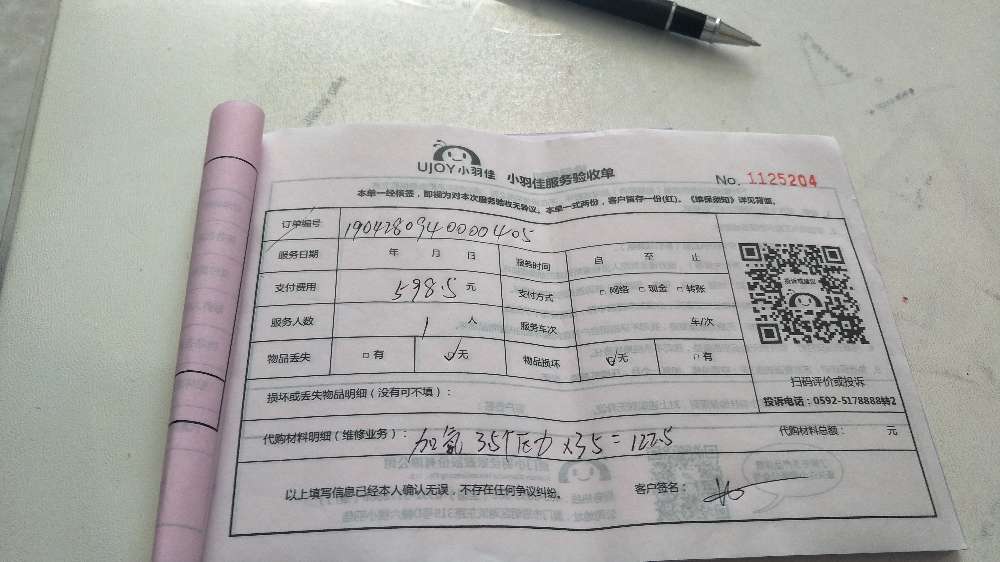 UJOY小羽佳 小羽佳服务验收单
No. 1125204
本单一经核签，即视为对本次服务验收无异议。本单一式两份，客户留存一份(红)。《维保须知》详见背面。
订单编号 1904280940000405
服务日期 年 月 日 服务时间 自 至 止
支付费用 598.5 元 支付方式 □ 网络 □ 现金 □ 转账
服务人数 1 人 服务车次 车/次
物品丢失 □ 有 ☑ 无 物品损坏 ☑ 无 □ 有
投诉或建议
扫码评价或投诉
投诉电话：0592-5178888转2
损坏或丢失物品明细（没有可不填）：
代购材料明细（维修业务）： 加氟 3.5个压力×35=122.5
代购材料总额： 元
以上填写信息已经本人确认无误，不存在任何争议纠纷。 客户签名：